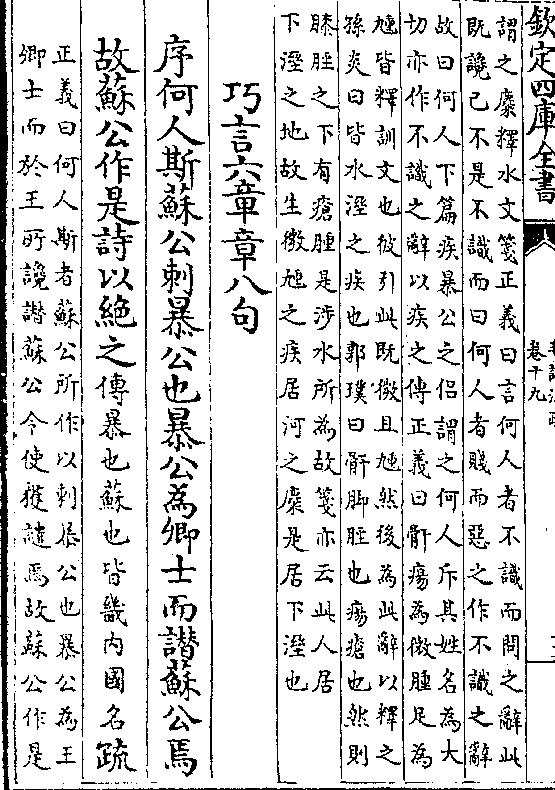 欽定四庫全書
卷十九
謂之麋釋水文箋正義曰言何人者不識而問之辭此
既讒己不是不識而曰何人者賤而惡之作不識之辭
故曰何人下篇疾暴公之侣謂之何人斥其姓名為大
切亦作不識之辭以疾之傳正義曰骭瘍為微腫足為
尰皆釋訓文也彼引此既微且尰然後為此辭以釋之
孫炎曰皆水溼之疾也郭璞曰骭脚脛也瘍瘡也然則
膝脛之下有瘡腫是涉水所為故箋亦云此人居
下溼之地故生微尰之疾居河之麋是居下溼也
巧言六章章八句
序何人斯蘇公刺暴公也暴公為卿士而譖蘇公焉
故蘇公作是詩以絶之傳暴也蘇也皆畿内國名疏
正義曰何人斯者蘇公所作以刺暴公也暴公為王
卿士而於王所讒譖蘇公令使獲譴焉故蘇公作是